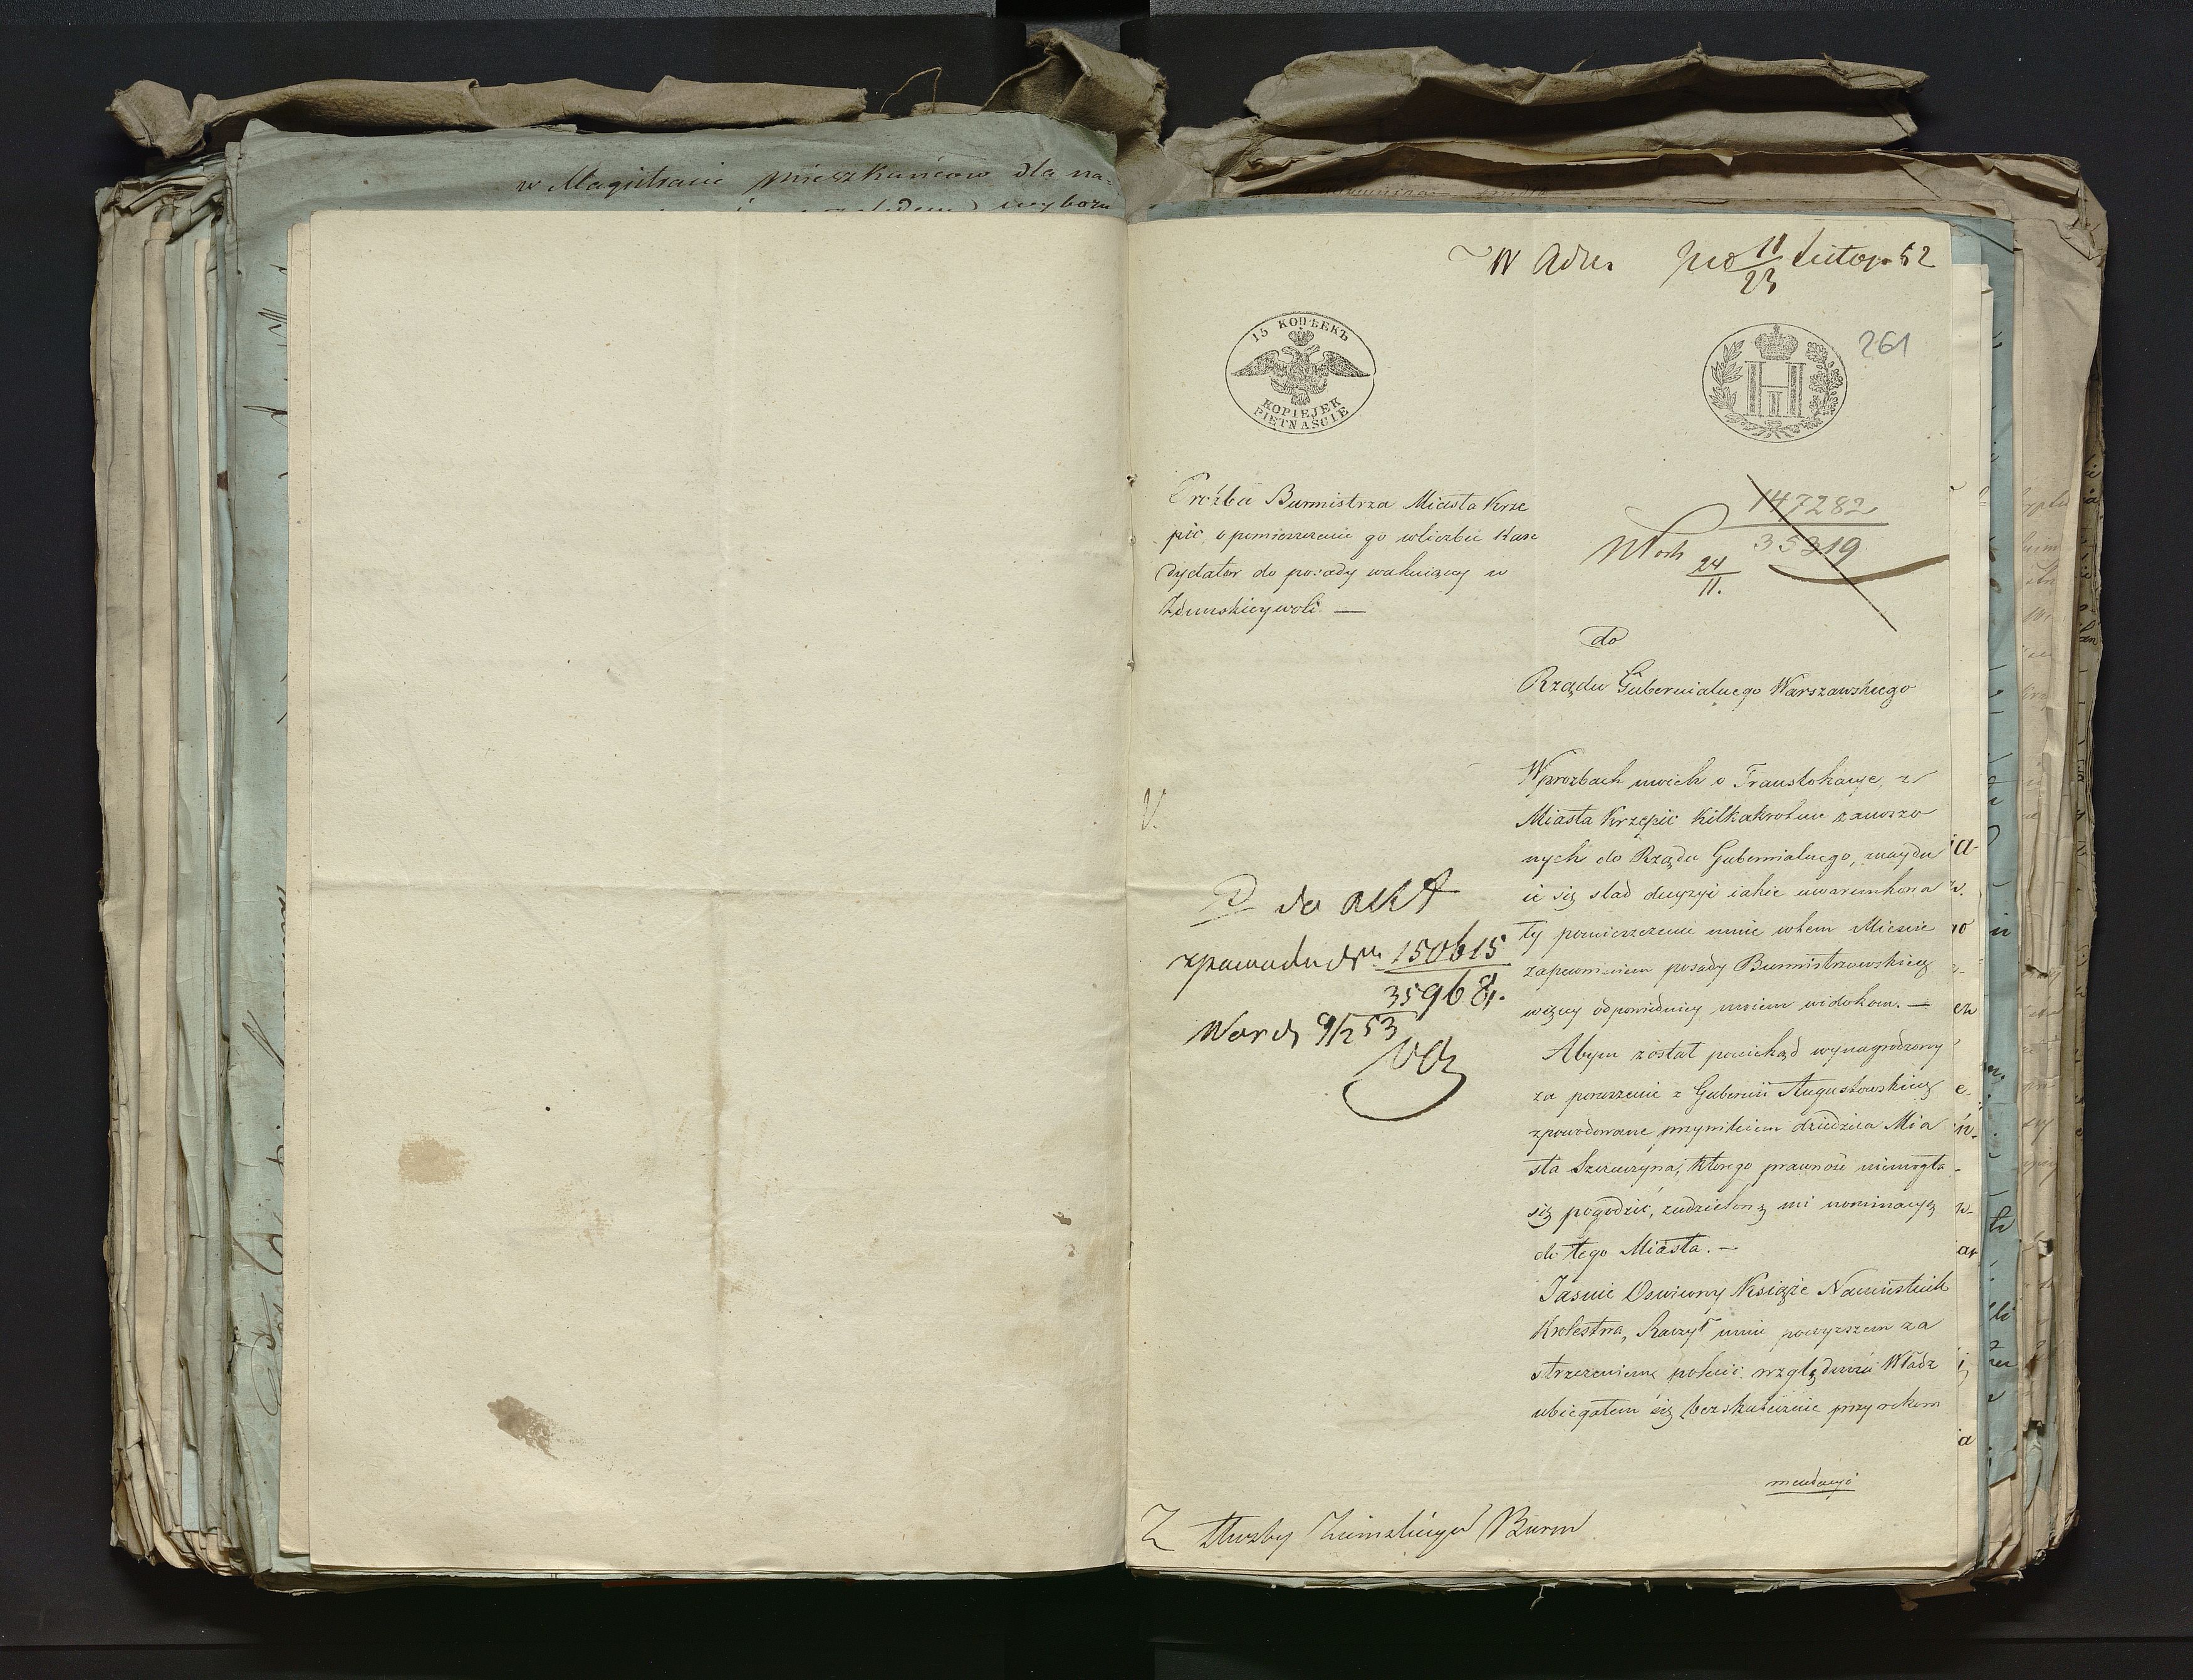 w Magistracie mieszkańców dla na=
wyboru
W Adm. pro 11/23 Listop. 52
15 КОПѢЕКЪ
KOPIEJEK
PIĘTNAŚCIE
H I
261
147282
35319
24
11.
Prożba Burmistrza Miasta Krze
pic, o pomieszczenie go wliczbie Kan
dydatow do posady wakuiącey w
Zdunskieywoli. —
do
Rządu Gubernialnego Warszawskiego
Wprozbach moich o Franslokacye, z
Miasta Krzepic kilkakrotnie zanoszo
nych do Rządu Gubernialnego, znaydu
ie się slad decyzyi iakie uwarunkowa
ły pomieszczenie mnie wtem Miescie
zapewnieniem posady Burmistrzowskiey
więcey odpowiedniey moiem widokom. —
Abym został poniekąd wynagrodzony
za poruszenie z Gubernii Augustowskiey
zpowodowane przywileiem dziedzica Mia
sta Szczuczyna, ktorego prawność niemogła
się pogodzić, zudzieloną mi nominacyą
do tego Miasta. —
Jasnie Oswiecony Książe Namiestnik
Krolestwa, Raczył mnie powyzszem za
strzezeniem polecić względność Władz
ubiegałem się bezskutecznie przy rekom
mendacyi
V.
D do akt
zpowodu dn. 150615
35968.
Warsz 9/2 53
Z Służby Burm